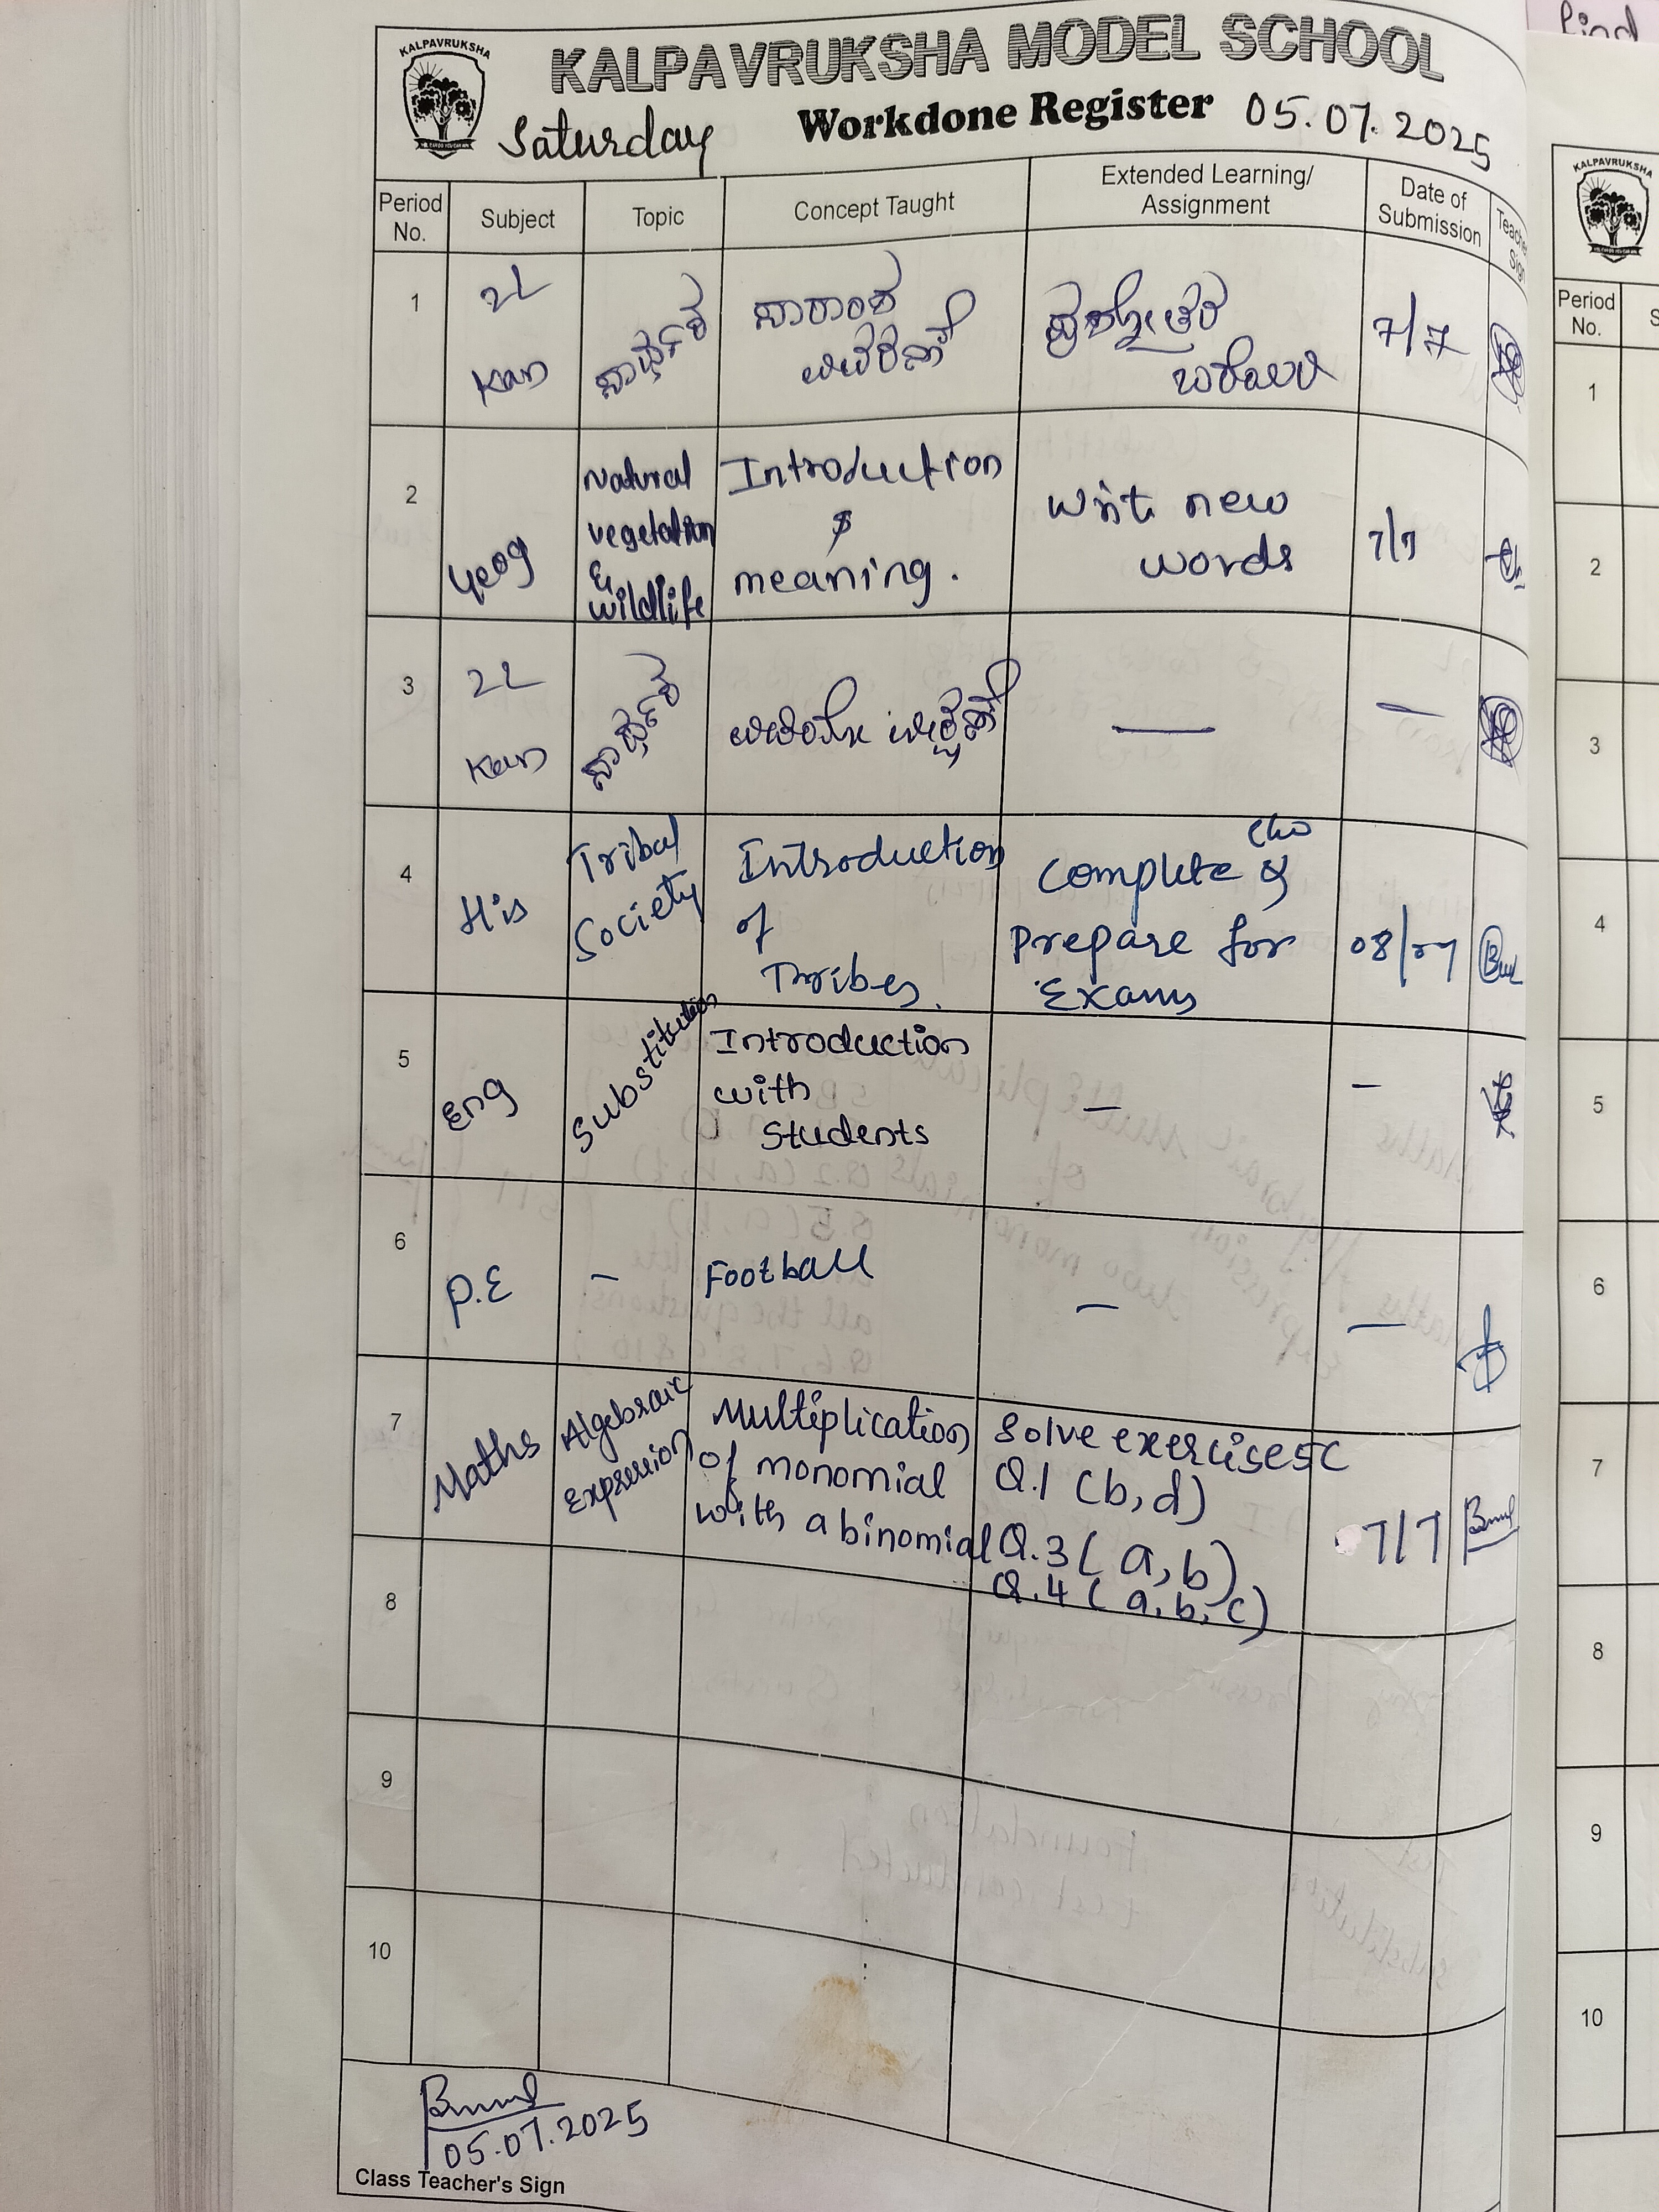 KALPAVRUKSHA
KALPAVRUKSHA MODEL SCHOOL
Saturday Workdone Register 05.07.2025
Period No. Subject Topic Concept Taught Extended Learning/ Assignment Date of Submission
1 2L Kan ಸಾರಾಂಶ ವಿವರಣೆ ಪ್ರಶ್ನೋತ್ತರ 7/7
2 Geog Natural vegetation & wildlife Introduction & meaning. Write new words 7/7
3 2L Kan — —
4 His Tribal Society Introduction of Thribes. Complete & Prepare for Exams 08/07
5 Eng Substitution Introduction with Students — —
6 P.E — Football — —
7 Maths Algebraic Expression Multiplication of monomial with a binomial Solve exercise 5C
Q.1 (b,d)
Q.3 (a,b)
Q.4 (a,b,c) 7/7
8
9
10
05.07.2025
Class Teacher's Sign
KALPAVRUKSHA
Period No.
1
2
3
4
5
6
7
8
9
10